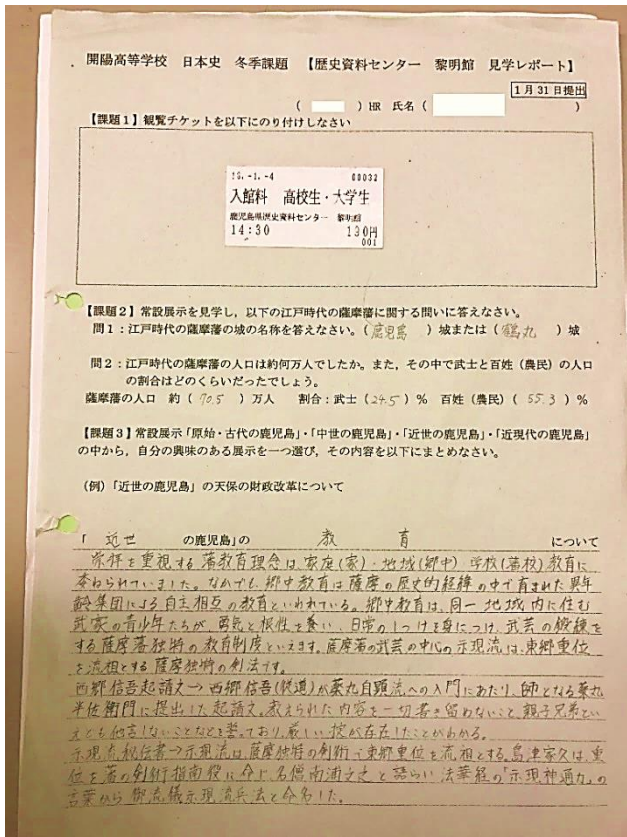 開陽高等学校 日本史 冬季課題 【歴史資料センター 黎明館 見学レポート】
1月31日提出
( ) HR 氏名 ( )
【課題1】観覧チケットを以下にのり付けしなさい
-1.-4 00032
入館料 高校生・大学生
鹿児島県歴史資料センター 黎明館
14:30 190円
001
【課題2】常設展示を見学し,以下の江戸時代の薩摩藩に関する問いに答えなさい。
問1:江戸時代の薩摩藩の城の名称を答えなさい。( 鹿児島 )城または( 鶴丸 )城
問2:江戸時代の薩摩藩の人口は約何万人でしたか。また,その中で武士と百姓(農民)の人口
の割合はどのくらいだったでしょう。
薩摩藩の人口 約( 70.5 )万人 割合:武士( 24.5 )% 百姓(農民)( 55.3 )%
【課題3】常設展示「原始・古代の鹿児島」・「中世の鹿児島」・「近世の鹿児島」・「近現代の鹿児島」
の中から,自分の興味のある展示を一つ選び,その内容を以下にまとめなさい。
(例)「近世の鹿児島」の天保の財政改革について
「 近世 の鹿児島」の 教育 について
崇拝を重視する藩教育理念は、家庭(家)・地域(郷中) 学校(藩校)教育に
委ねられていました。なかでも、郷中教育は薩摩の歴史的経緯の中で育まれた異年
齢集団による自主相互の教育といわれている。郷中教育は、同一地域内に住む
武家の青少年たちが、勇気と根性を養い、日常のしつけを身につけ、武芸の鍛練を
する薩摩藩独特の教育制度といえます。薩摩藩の武芸の中心の示現流は、東郷重位
を流祖とする薩摩独特の剣法です。
西郷信吾起請文→西郷信吾(従道)が薬丸自顕流への入門にあたり、師となる薬丸
半佐衛門に提出した起請文。教えられた内容を一切書き留わないこと、親子兄弟とい
えども他言しないことなどを誓っており、厳しい掟が存在したことがわかる。
示現流秘伝書→示現流は薩摩独特の剣術で東郷重位を流祖とする。島津家久は、重
位を藩の剣術指南役に命じ、名僧南浦文之と語らい 法華経の「示現神通力」の
言葉から御流儀示現流兵法と命名した。